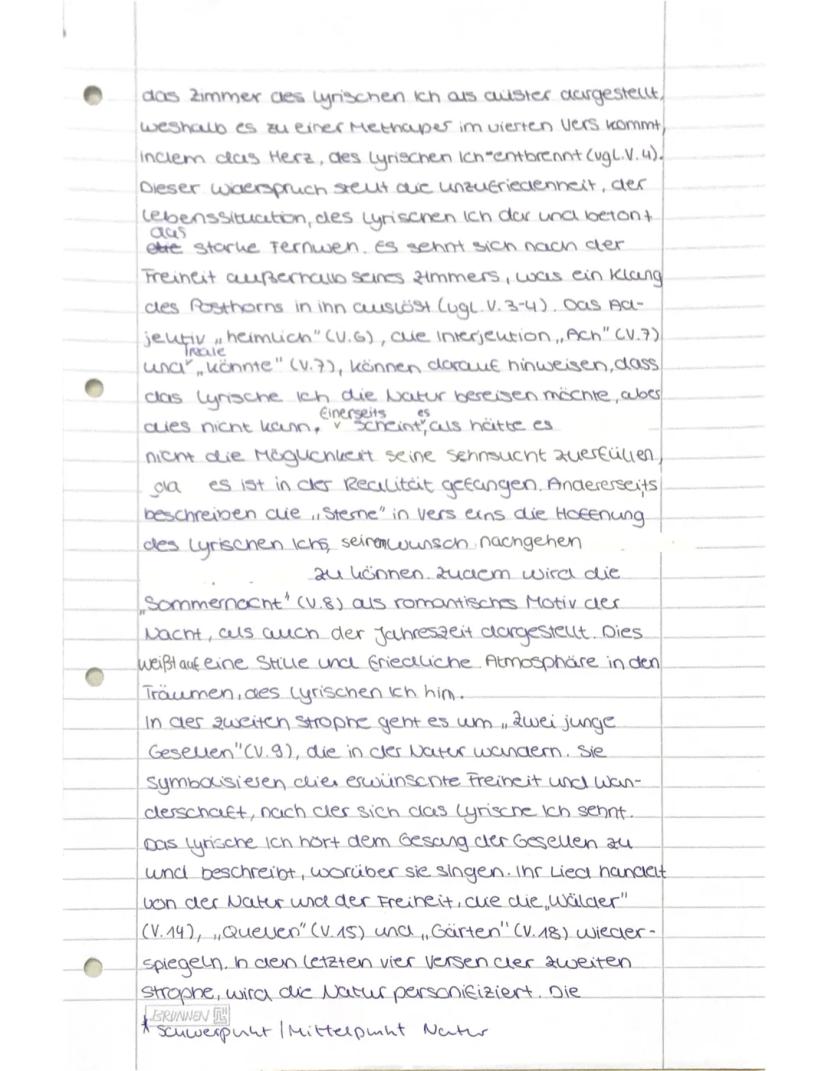 das Zimmer des lyrischen Ich als düster dargestellt,
weshalb es zu einer Methaper im vierten Vers kommt,
indem das Herz, des lyrischen Ich entbrennt (vgl. V. 4).
Dieser Widerspruch stellt die unzufriedenheit, der
Lebenssituation, des lyrischen Ich dar und betont
das
die starke Fernweh. Es sehnt sich nach der
Freiheit außerhalb seines Zimmers, was ein Klang
des Posthorns in ihn auslöst (vgl. V. 3-4). Das Ad-
jektiv „heimlich" (V.6), die Interjektion „Ach" (V.7)
und „könnte" (V.7), können darauf hinweisen, dass
das lyrische Ich die Natur bereisen möchte, aber
Einerseits es
dies nicht kann, scheint, als hätte es
nicht die Möglichkeit seine Sehnsucht zuerfüllen,
da es ist in der Realität gefangen. Andererseits
beschreiben die „Sterne" in Vers eins die Hoffnung
des lyrischen Ichs, seinem wunsch nachgehen
zu können. Zudem wird die
„Sommernacht" (V.8) als romantisches Motiv der
Nacht, als auch der Jahreszeit dargestellt. Dies
weißt auf eine Stille und friedliche Atmosphäre in den
Träumen, des lyrischen Ich hin.
In der zweiten Strophe geht es um „zwei junge
Gesellen" (V.9), die in der Natur wandern. Sie
symbolisieren die erwünschte Freiheit und Wan-
derschaft, nach der sich das lyrische Ich sehnt.
Das lyrische Ich hört dem Gesang der Gesellen zu
und beschreibt, worüber sie singen. Ihr Lied handelt
von der Natur und der Freiheit, die die „Wälder"
(V.14), „Quellen" (V.15) und „Gärten" (V.18) wieder-
spiegeln. In den letzten vier Versen der zweiten
Strophe, wird die Natur personifiziert. Die
BRUNNEN
* Schwerpunkt / Mittelpunkt Natur